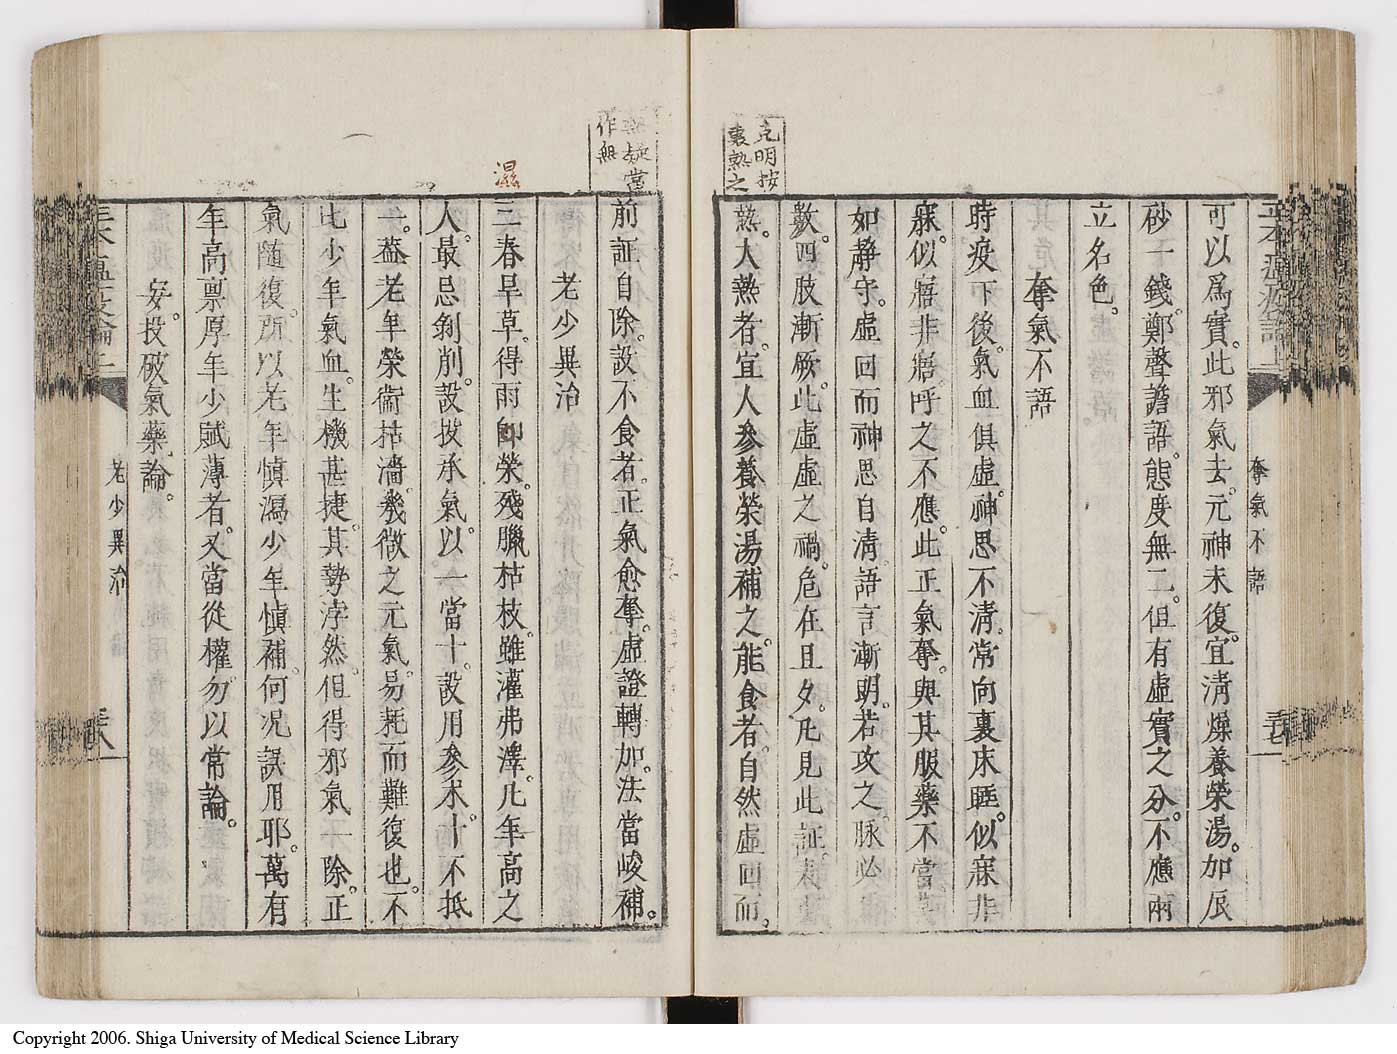 可以爲實。此邪氣去。元神未復。宜清燥養榮湯。加辰
砂一錢。鄭聲譫語。態度無二。但有虛實之分。不應兩
立名色。
奪氣不語
時疫下後。氣血俱虛。神思不清。常向裏床睡。似寐非
寐。似寤非寤。呼之不應。此正氣奪。與其服藥不當
如靜守。虛回而神思自清。語言漸明。若攻之。脉必
數。四肢漸厥。此虛虛之禍。危在旦夕。凡見此証。表裏
熱。大熱者。宜人參養榮湯補之。能食者。自然虛回而。
奪氣不語
克明按
裏熱之
疑當
作無
前証自除。設不食者。正氣愈奪。虛證轉加。法當峻補。
老少異治
三春旱草。得雨卽榮。殘臘枯枝。雖灌弗澤。凡年高之
人。最忌剝削。設投承氣。以一當十。設用參朮。十不抵
一。蓋老年榮衞枯濇。幾微之元氣。易耗而難復也。不
比少年氣血。生機甚捷。其勢浡然。但得邪氣一除。正
氣隨復。所以老年慎瀉。少年慎補。何况誤用耶。萬有
年高禀厚年少賦薄者。又當從權。勿以常論。
妄投破氣藥論。
老少異治
濕
Copyright 2006. Shiga University of Medical Science Library